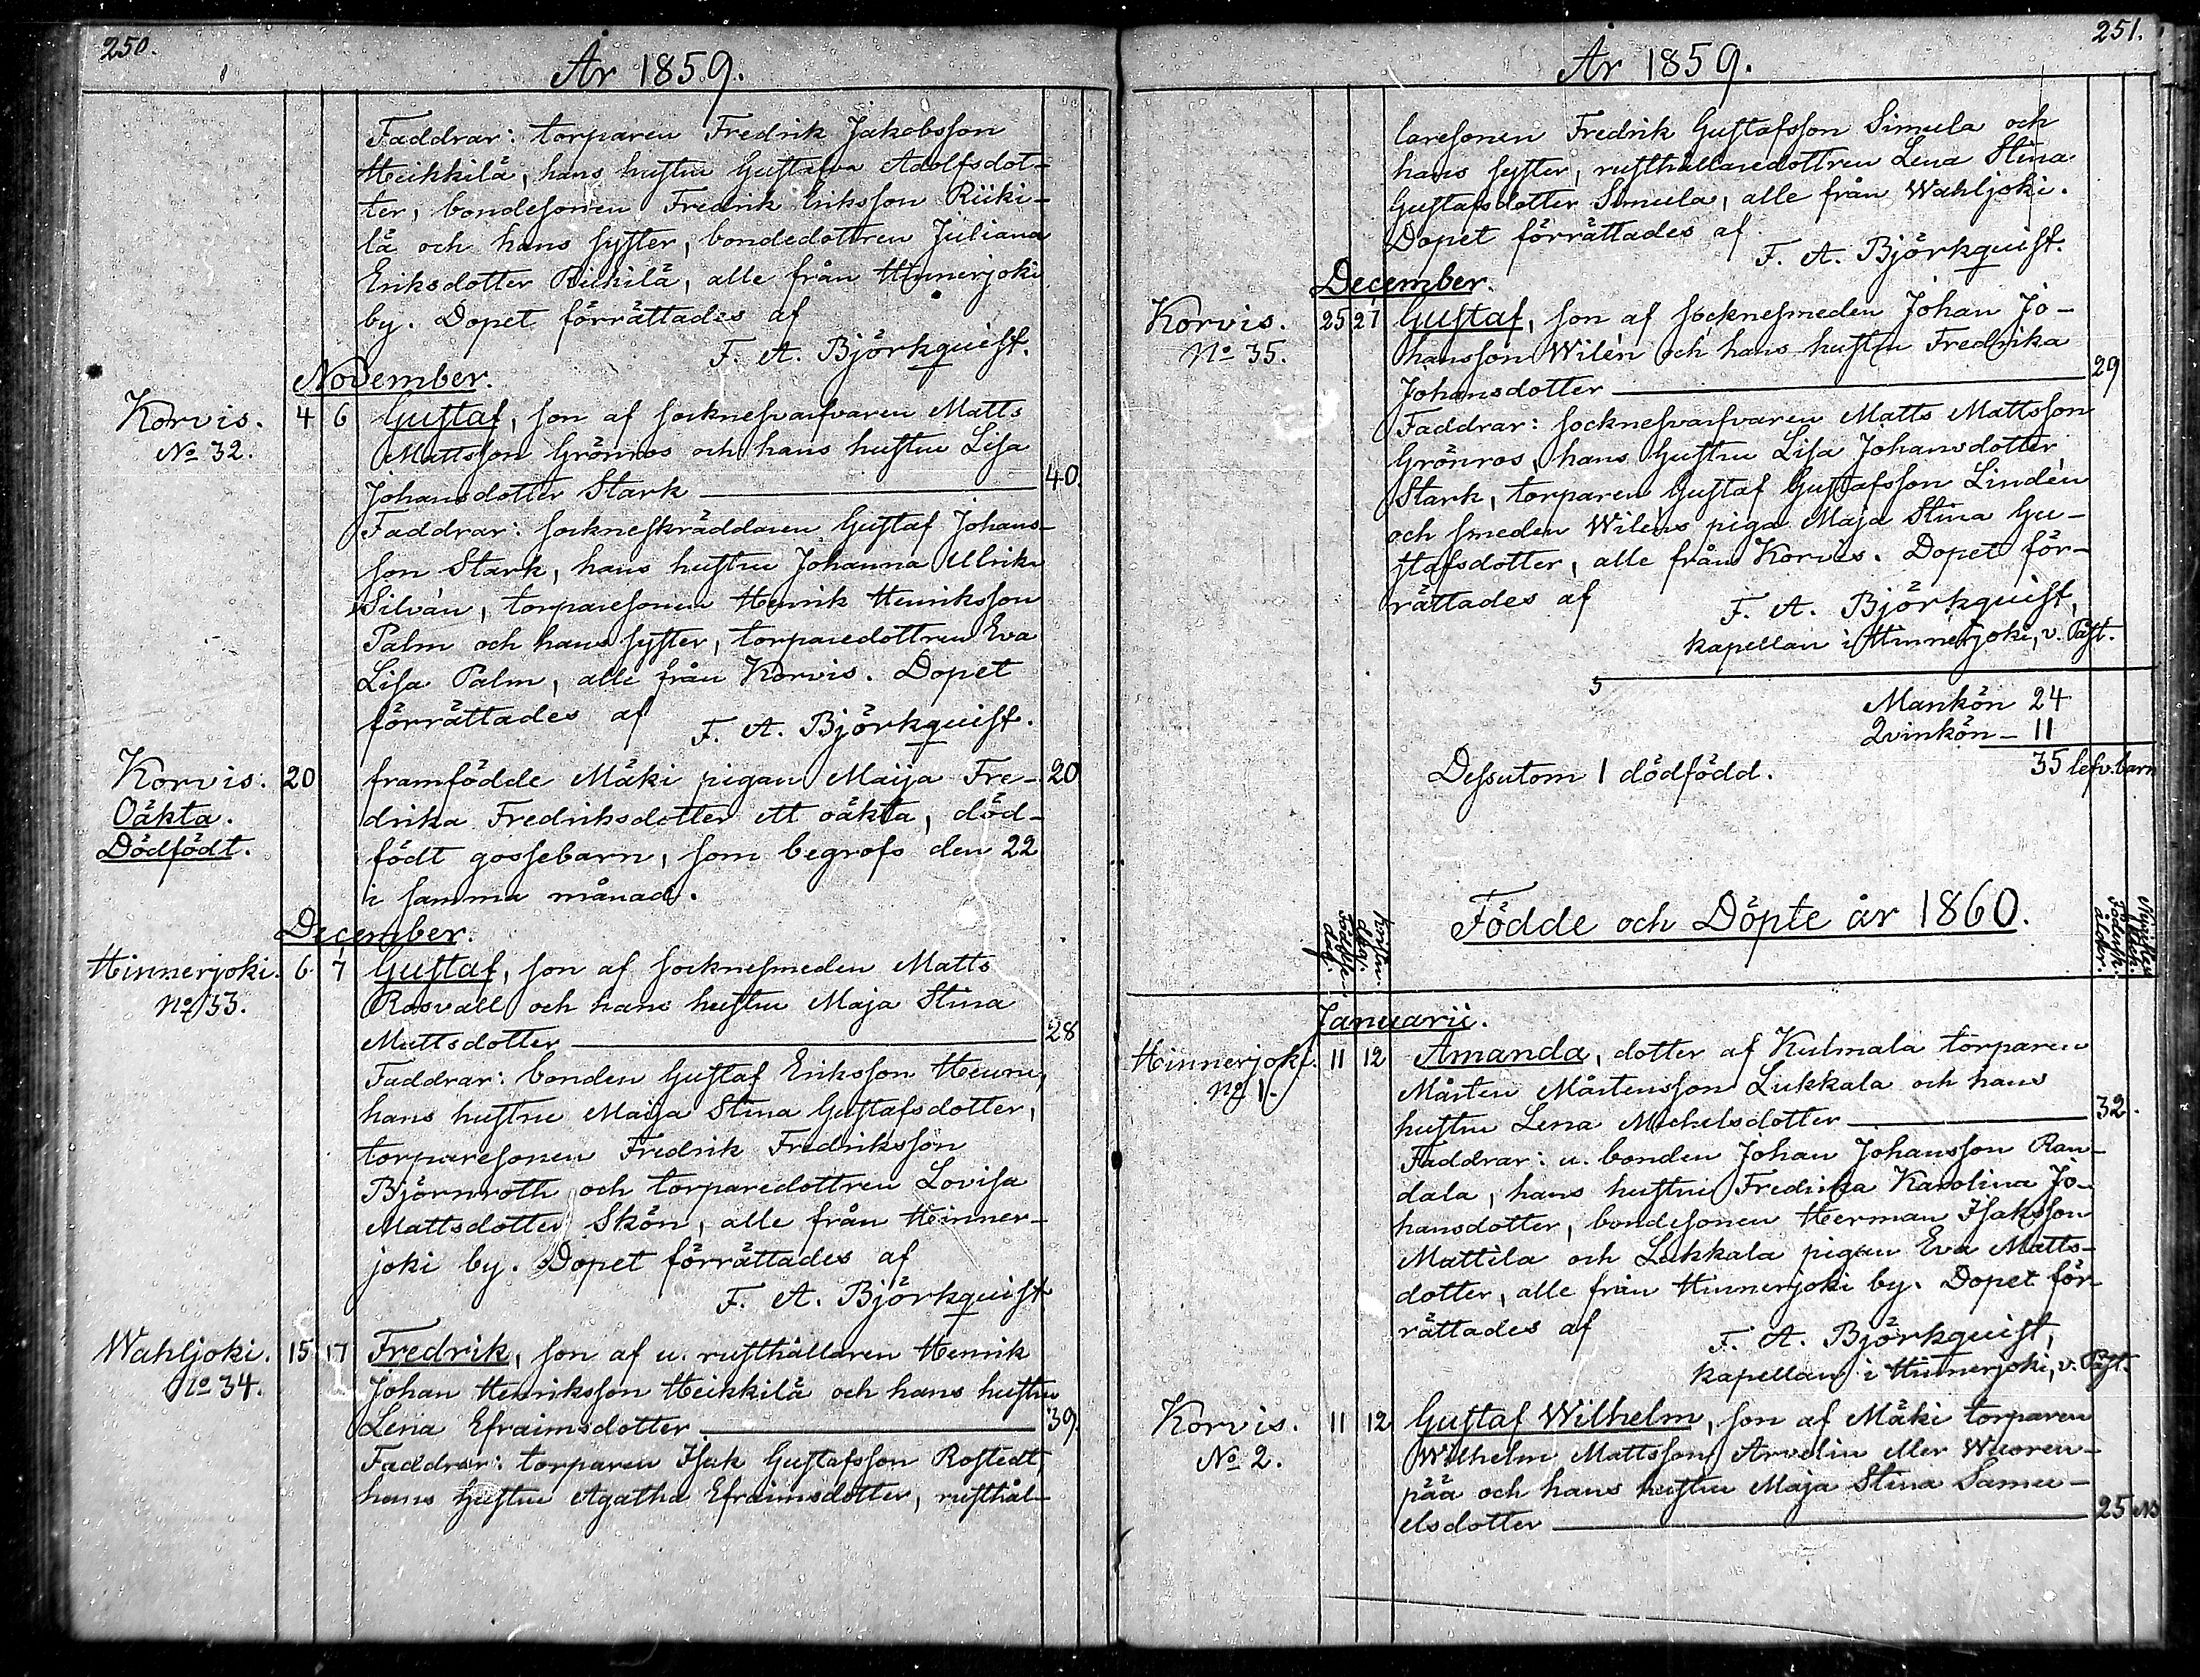 250.
År 1859.
Faddrar: torparen Fredrik Jakobsson
Heikkilä, hans hustru Gustafva Adolfsdot-
ter, bondesonen Fredrik Eriksson Riiki-
lä och hans syster, bondedottren Juliana
Eriksdotter Riikilä, alle från Hinnerjoki
by. Dopet förrättades af
F. A. Björkquist.
November.
Korvis. 4 6 Gustaf, son af socknesvarfvaren Matts
No 32. Mattsson Grönros och hans hustru Lisa
Johansdotter Stark 40.
Faddrar: sockneskräddaren Gustaf Johans-
son Stark, hans hustru Johanna Ulrika
Silván, torparesonen Henrik Henriksson
Palm och hans syster, torparedottren Eva
Lisa Palm, alle från Korvis. Dopet
förrättades af F. A. Björkquist.
Korvis. 20 framfödde Mäki pigan Maija Fre- 20
Oäkta. drika Fredriksdotter ett oäkta, död-
Dödfödt. födt gossebarn, som begrofs den 22
i samma månad.
December.
Hinnerjoki. 6 7 Gustaf, son af socknesmeden Matts
No 33. Rosvall och hans hustru Maja Stina
Mattsdotter 28
Faddrar: bonden Gustaf Eriksson Heuru,
hans hustru Maija Stina Gustafsdotter,
torparesonen Fredrik Fredriksson
Björnroth och torparedottren Lovisa
Mattsdotter Skön, alle från Hinner-
joki by. Dopet förrättades af
F. A. Björkquist
Wahljoki. 15 17 Fredrik, son af u. rusthållaren Henrik
No 34. Johan Henriksson Heikkilä och hans hustru
Lena Efraimsdotter 39.
Faddrar: torparen Isak Gustafsson Rostedt,
hans hustru Agatha Efraimsdotter, rusthål-
251.
År 1859.
laresonen Fredrik Gustafsson Simula och
hans syster, rusthållaredottren Lena Stina
Gustafsdotter Simula, alle från Wahljoki.
Dopet förrättades af
F. A. Björkquist.
December.
Korvis. 25 27 Gustaf, son af socknesmeden Johan Jo-
No 35. hansson Wilén och hans hustru Fredrika
Johansdotter 29
Faddrar: socknesvarfvaren Matts Mattsson
Grönros, hans hustru Lisa Johansdotter
Stark, torparen Gustaf Gustafsson Lindén
och smeden Wiléns piga Maja Stina Gu-
stafsdotter, alle från Korvis. Dopet för-
rättades af F. A. Björkquist,
kapellan i Hinnerjoki, v. Past.
Mankön 24
Qvinkön - 11
Dessutom 1 dödfödd. 35 lefv. barn
Födde och Döpte år 1860.
Januarii.
Hinnerjoki. 11 12 Amanda, dotter af Kulmala torparen
No 1. Mårten Mårtensson Lukkala och hans
hustru Lena Michelsdotter 32.
Faddrar: u. bonden Johan Johansson Ran-
dala, hans hustru Fredrika Karolina Jo-
hansdotter, bondesonen Herman Isaksson
Mattila och Lukkala pigan Eva Matts-
dotter, alle från Hinnerjoki by. Dopet för
rättades af F. A. Björkquist,
kapellan i Hinnerjoki, v. Past.
Korvis. 11 12 Gustaf Wilhelm, son af Mäki torparen
No 2. Wilhelm Mattsson Arvelin eller Wuoren-
pää och hans hustru Maja Stina Samu-
elsdotter 25